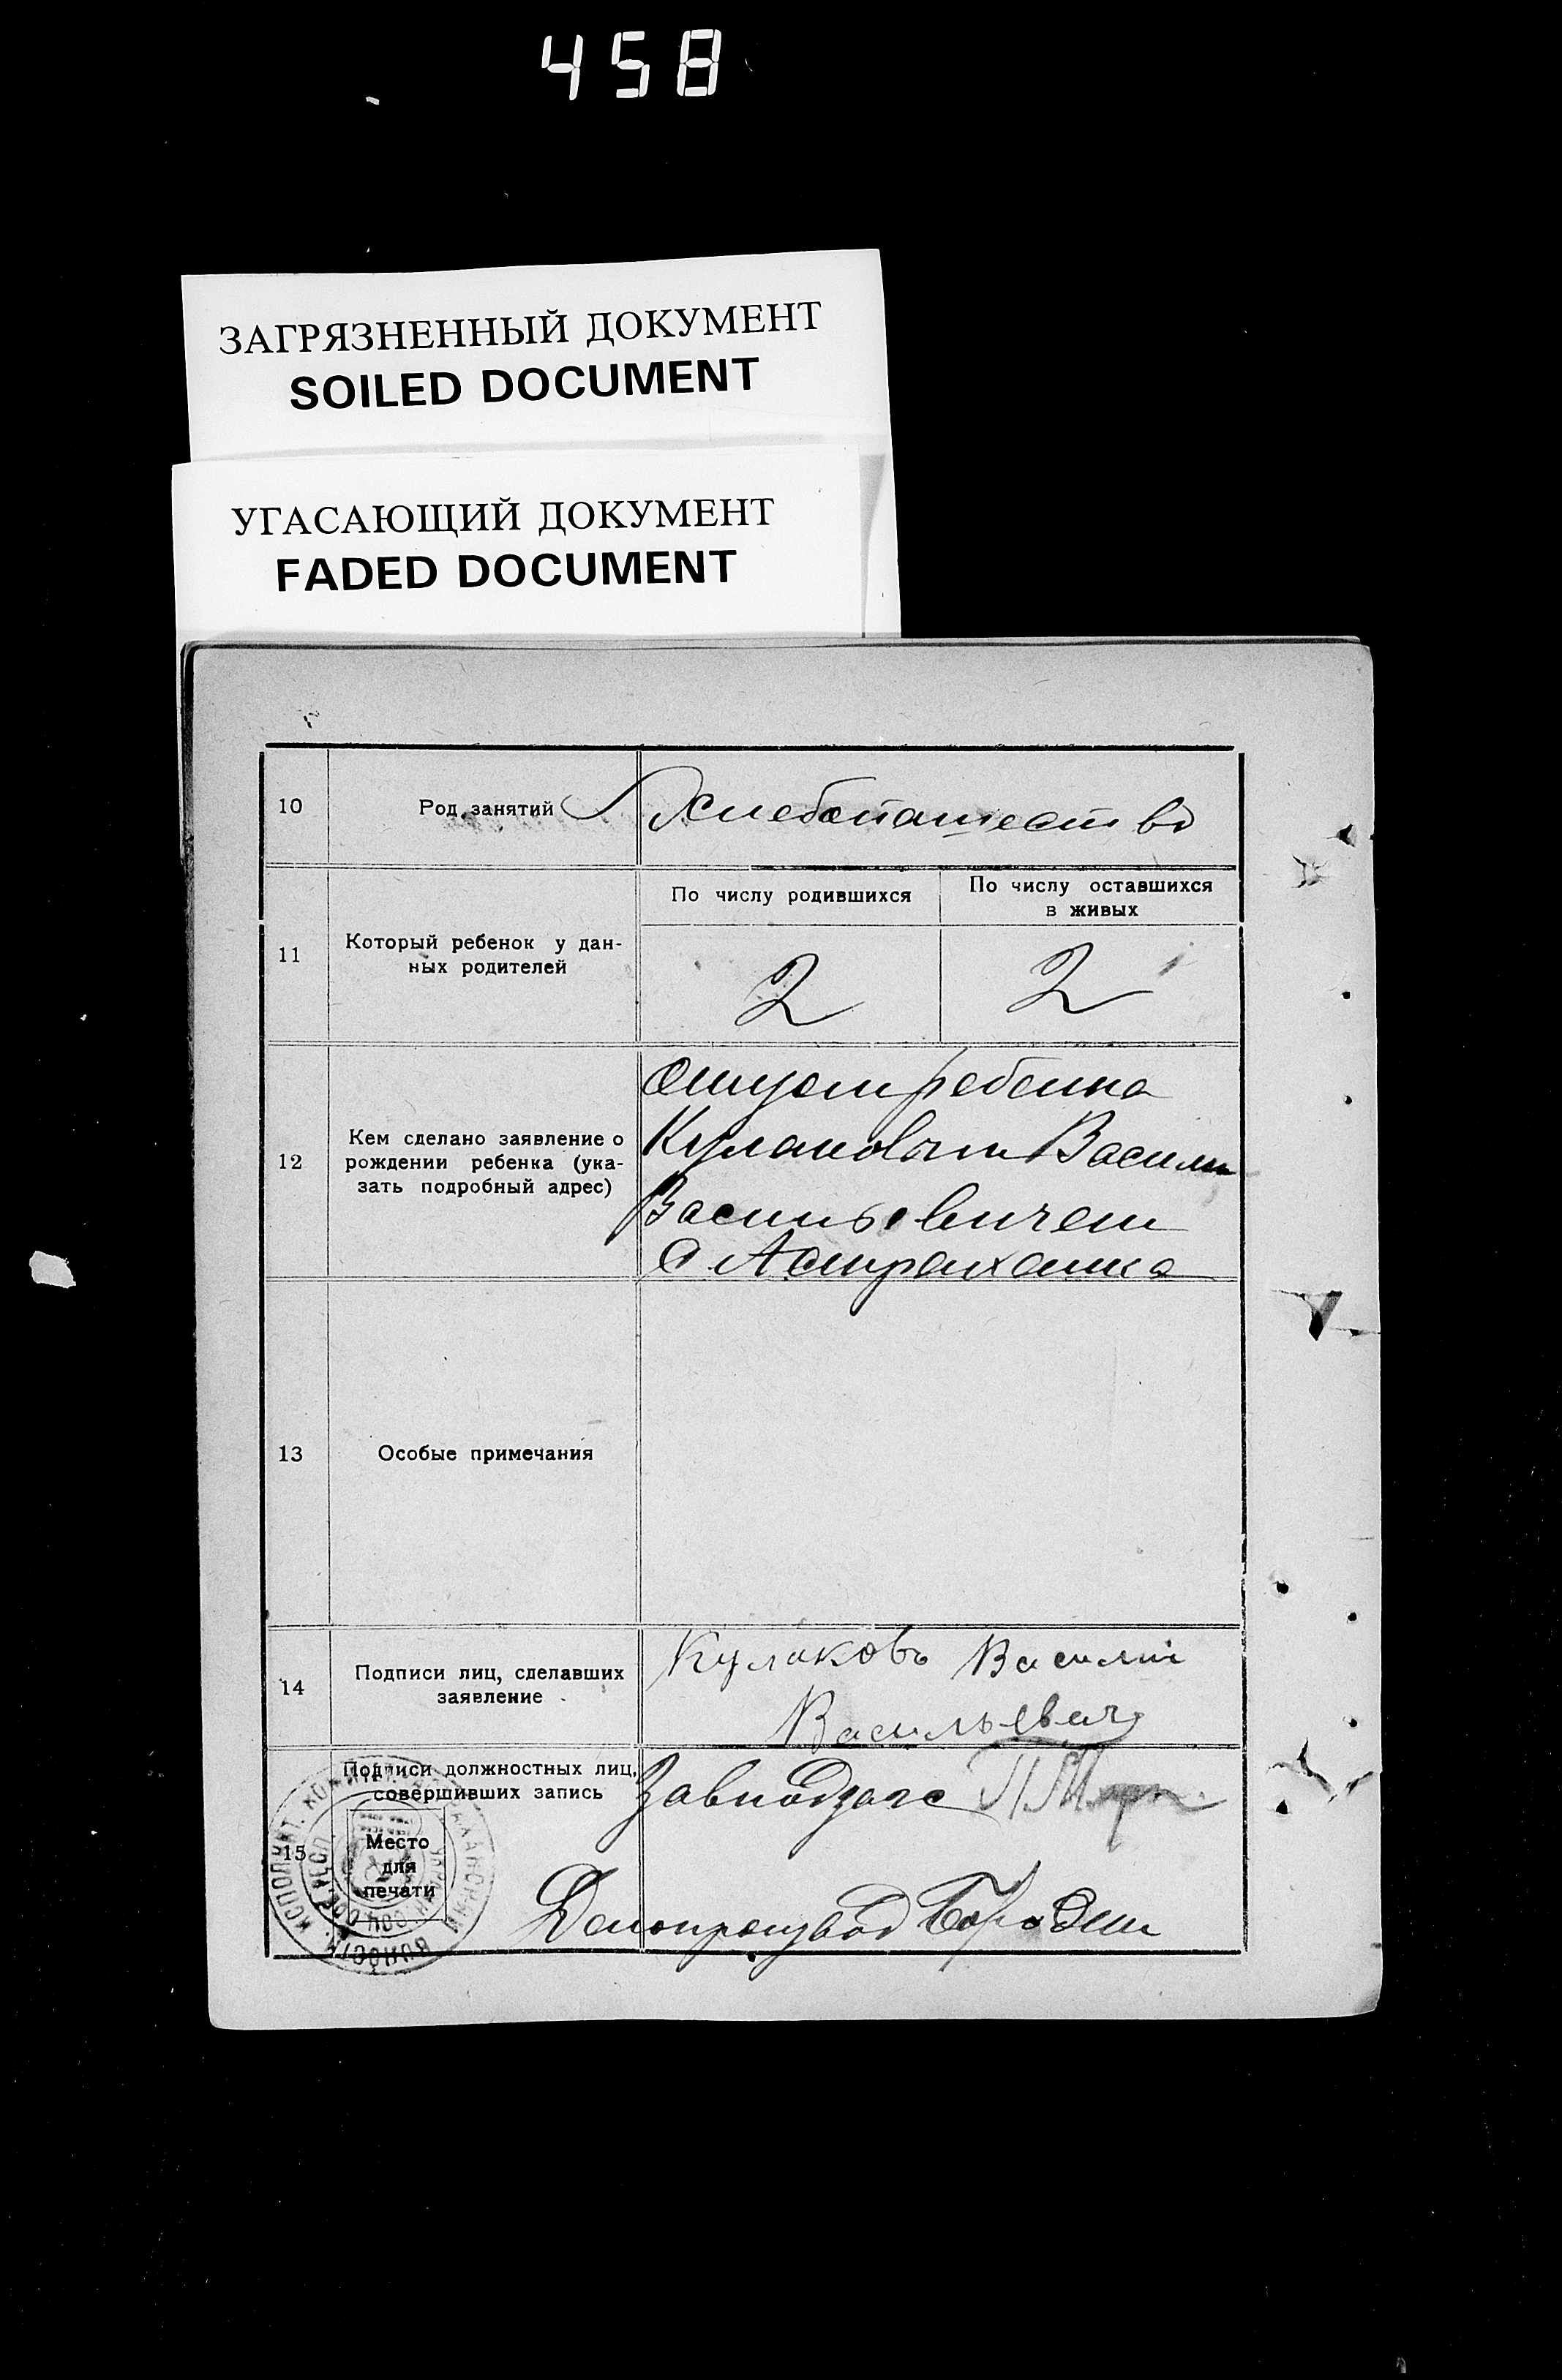 458
ЗАГРЯЗНЕННЫЙ ДОКУМЕНТ
SOILED DOCUMENT
УГАСАЮЩИЙ ДОКУМЕНТ
FADED DOCUMENT
10
Род занятий
Хлебопашество
11
Который ребенок у дан-
ных родителей
По числу родившихся
По числу оставшихся
в живых
2
2
12
Кем сделано заявление о
рождении ребенка (ука-
зать подробный адрес)
Отцом ребенка
Кулаковым Васили
Васильевичем
с Астраханка
13
Особые примечания
14
Подписи лиц, сделавших
заявление
Кулаковъ Василий
Васильевич
15
Подписи должностных лиц,
совершивших запись
Место
для
печати
Завподзагс
Делопроизвод Бородин